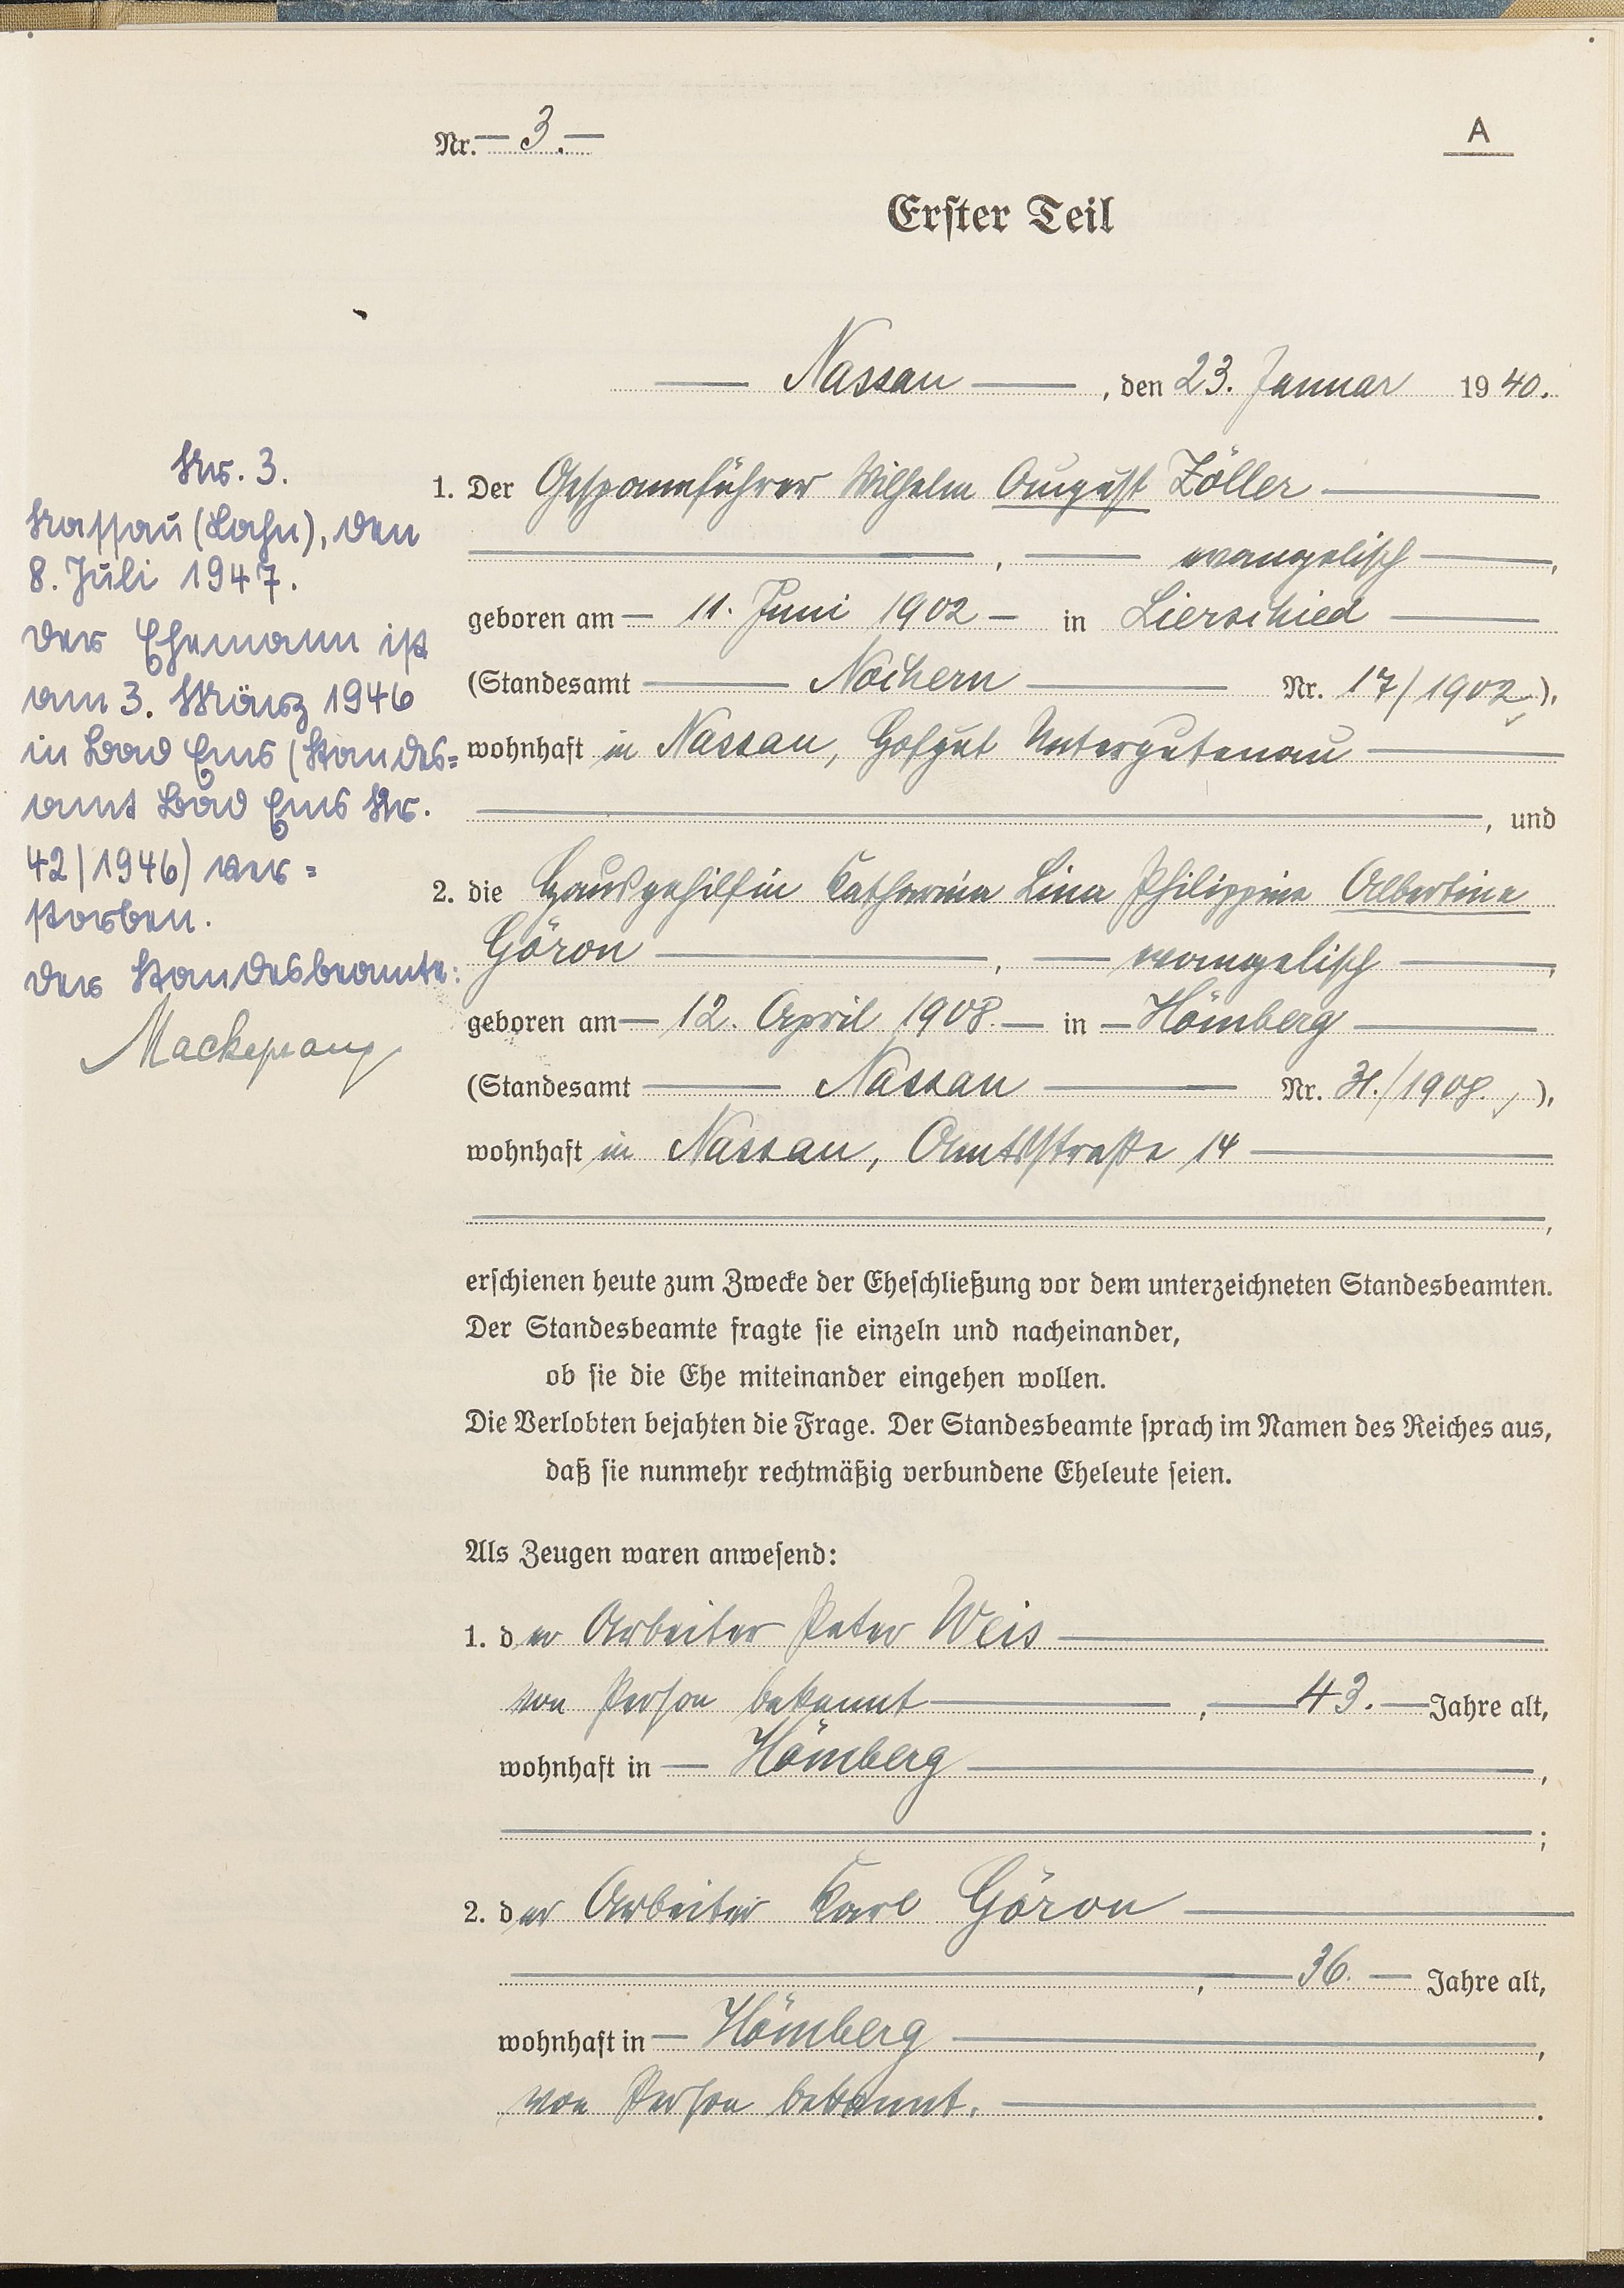 Nr. 3.
A
Erster Teil
Nassau, den 23. Januar 1940.
Nr. 3.
Nassau (Lahn), den
8. Juli 1947.
Der Ehemann ist
am 3. März 1946
in Bad Ems (Standes=
amt Bad Ems Nr.
42/1946) ver=
storben.
Der Standesbeamte:
Mackeprang
1. Der Gespannführer Wilhelm August Zöller
, evangelisch,
geboren am 11. Juni 1902 in Lierschied
(Standesamt Nochern Nr. 17/1902),
wohnhaft in Nassau, Hofgut Untergutenau
, und
2. die Hausgehilfin Katharina Lina Philippine Albertine
Göron, evangelisch,
geboren am 12. April 1908. in Hömberg
(Standesamt Nassau Nr. 31./1908.),
wohnhaft in Nassau, Amtsstraße 14
,
erschienen heute zum Zwecke der Eheschließung vor dem unterzeichneten Standesbeamten.
Der Standesbeamte fragte sie einzeln und nacheinander,
ob sie die Ehe miteinander eingehen wollen.
Die Verlobten bejahten die Frage. Der Standesbeamte sprach im Namen des Reiches aus,
daß sie nunmehr rechtmäßig verbundene Eheleute seien.
Als Zeugen waren anwesend:
1. der Arbeiter Peter Weis
von Person bekannt, 43. Jahre alt,
wohnhaft in Hömberg,
;
2. der Arbeiter Karl Göron
, 36. Jahre alt,
wohnhaft in Hömberg,
von Person bekannt.